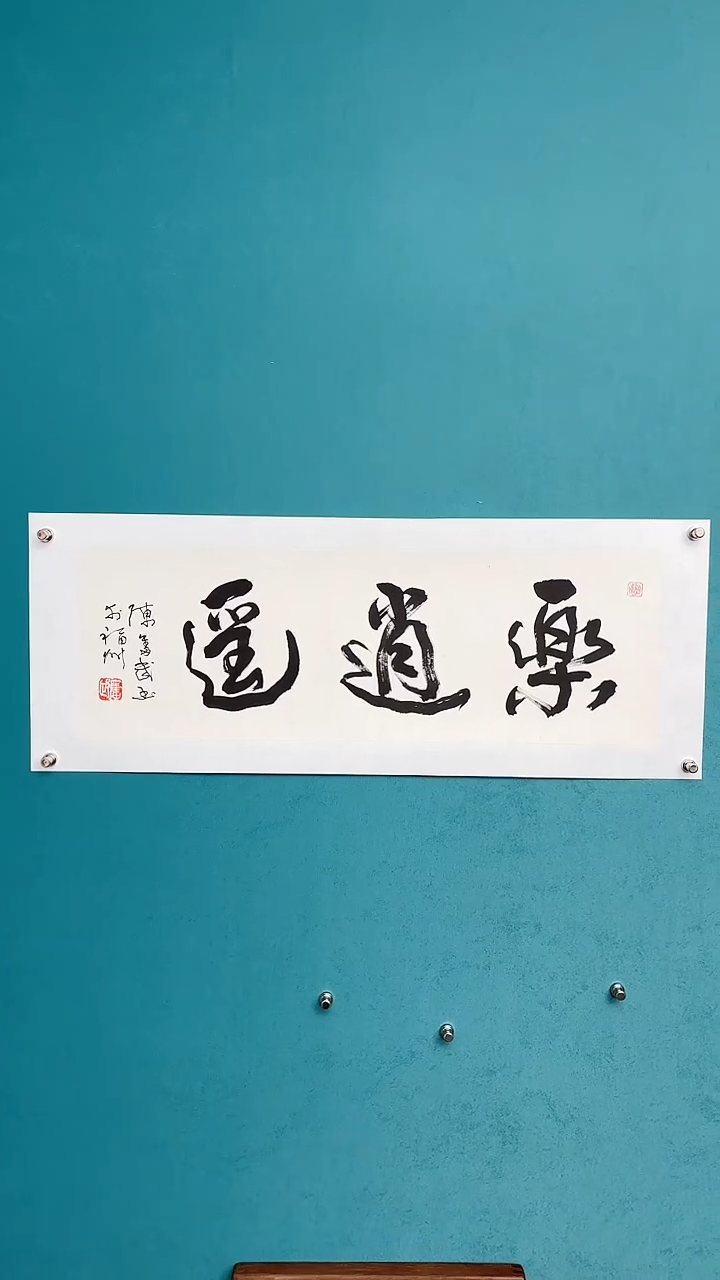 樂逍遥
陳奮武書
於福州